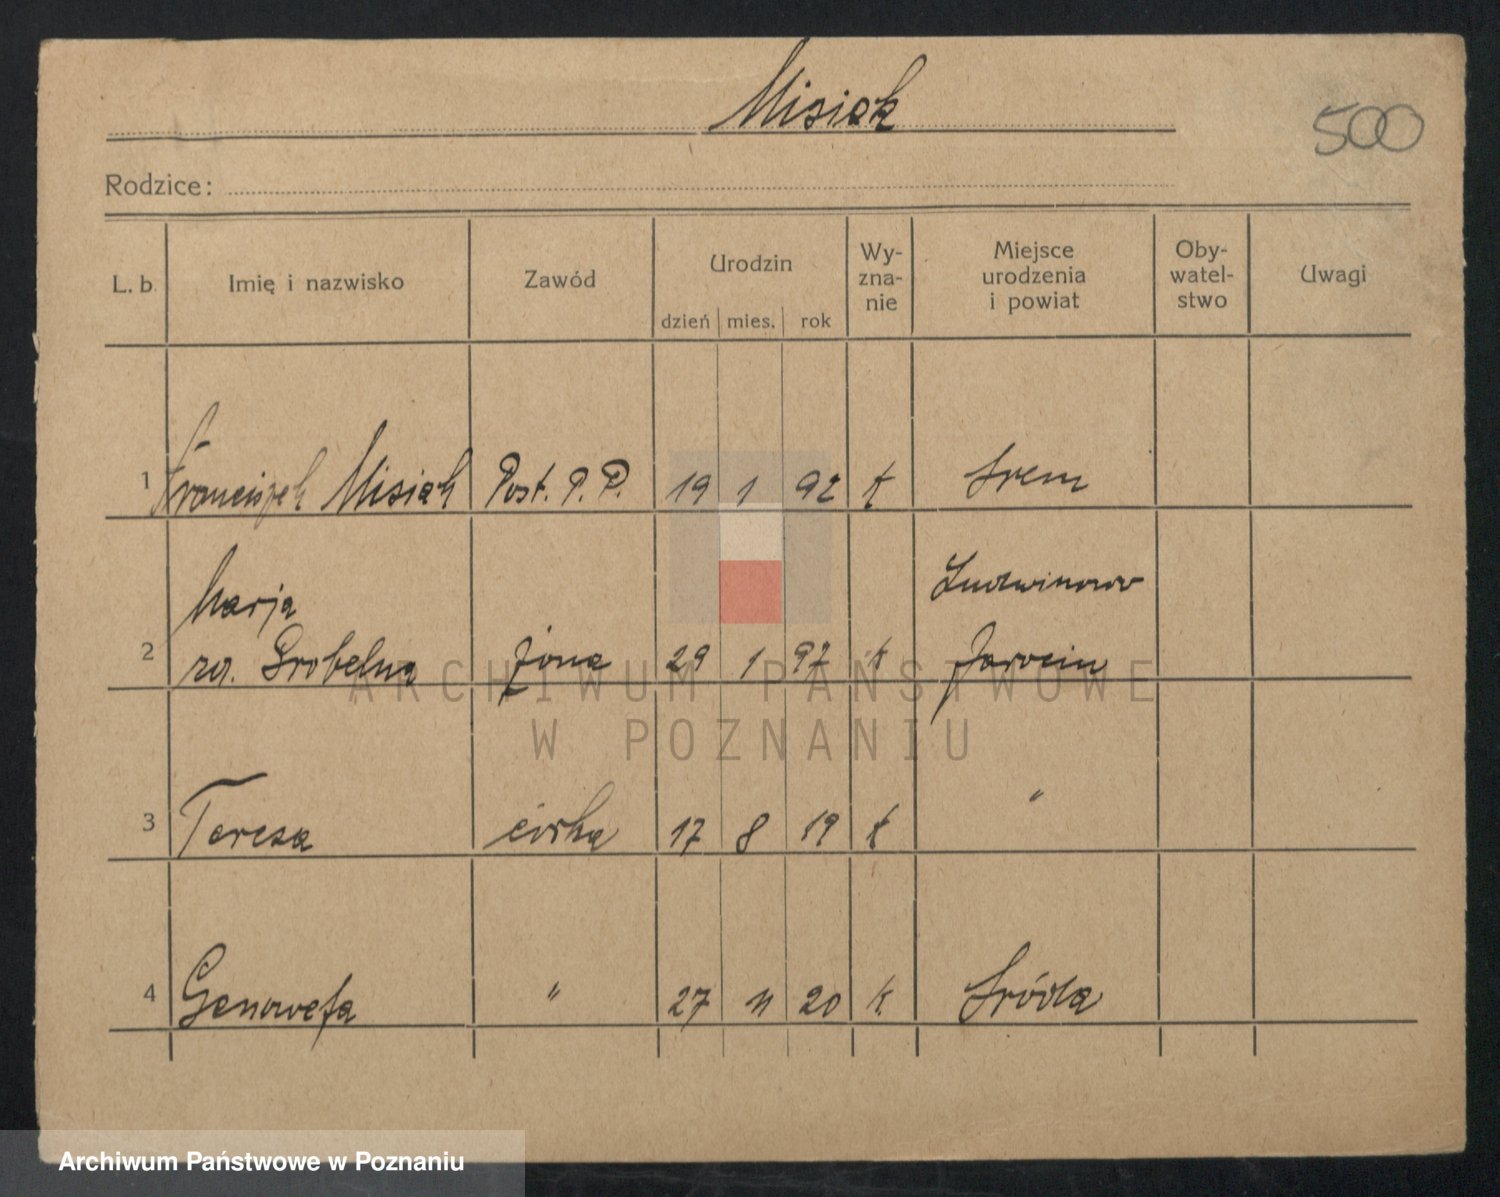 Misiak
500
Rodzice:
L. b. Imię i nazwisko Zawód Urodzin dzień mies. rok Wy-zna-nie Miejsce urodzenia i powiat Oby-watel-stwo Uwagi
1 Franciszek Misiak Post. P. P. 19 1 92 k Śrem
Marja Ludwinowo
2 zd. Grobelna żona 29 1 97 k Jarocin
3 Teresa córka 17 8 19 k "
4 Genowefa " 27 11 20 k Środa
ARCHIWUM PAŃSTWOWE
W POZNANIU
Archiwum Państwowe w Poznaniu